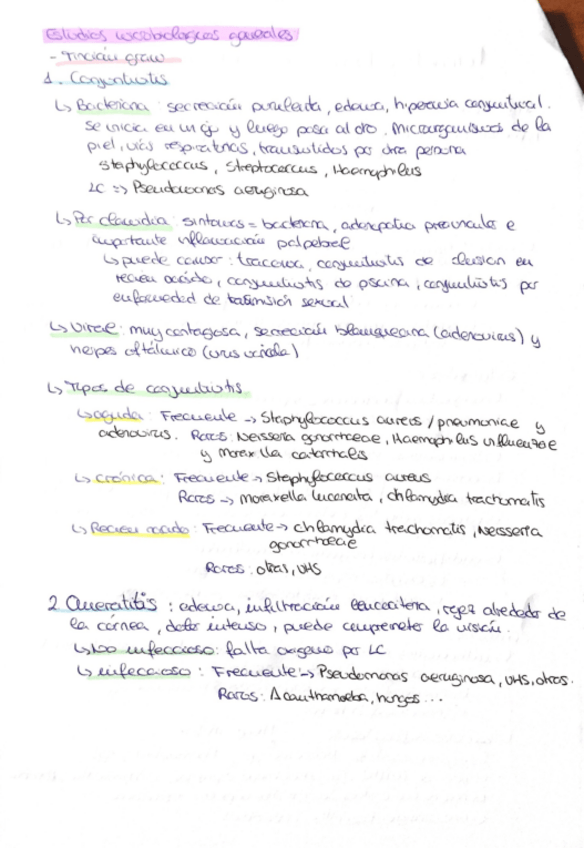 Estudios microbiológicos generales
- Tinción gram
1. Conjuntivitis
↳ Bacteriana: secreación purulenta, edema, hiperemia conjuntival.
se inicia en un ojo y luego pasa al otro. Microorganismos de la
piel, vías respiratorias, transmitidos por otra persona
Staphylococcus, Streptococcus, Haemophilus
LC => Pseudomonas aeruginosa
↳ Por clamidia: síntomas = bacteriana, adenopatia preauricular e
importante inflamación palpebral
↳ puede causar: tracoma, conjuntivitis de inclusion en
recien nacido, conjuntivitis de piscina, conjuntivitis por
enfermedad de trasmisión sexual
↳ Viral: muy contagiosa, secreación blanquecina (adenovirus) y
herpes oftálmico (virus varicela)
↳ Tipos de conjuntivitis.
↳ aguda: Frecuente -> Staphylococcus aureus / pneumoniae y
adenovirus. Raros: Neisseria gonorrhoeae, Haemophilus influenzae
y Moraxella catarrhalis
↳ crónica: Frecuente -> Staphylococcus aureus
Raros -> moraxella lacunata, chlamydia trachomatis
↳ Recien nacido: Frecuente -> chlamydia trachomatis, Neisseria
gonorrhoeae
Raros: otras, VHS
2 Queratitis: edema, infiltración leucocitaria, rojez alrededor de
la córnea, dolor intenso, puede comprometer la visión.
↳ No infeccioso: falta oxigeno por LC
↳ infeccioso: Frecuente -> Pseudomonas aeruginosa, VHS, otros.
Raros: Acanthamoeba, hongos...